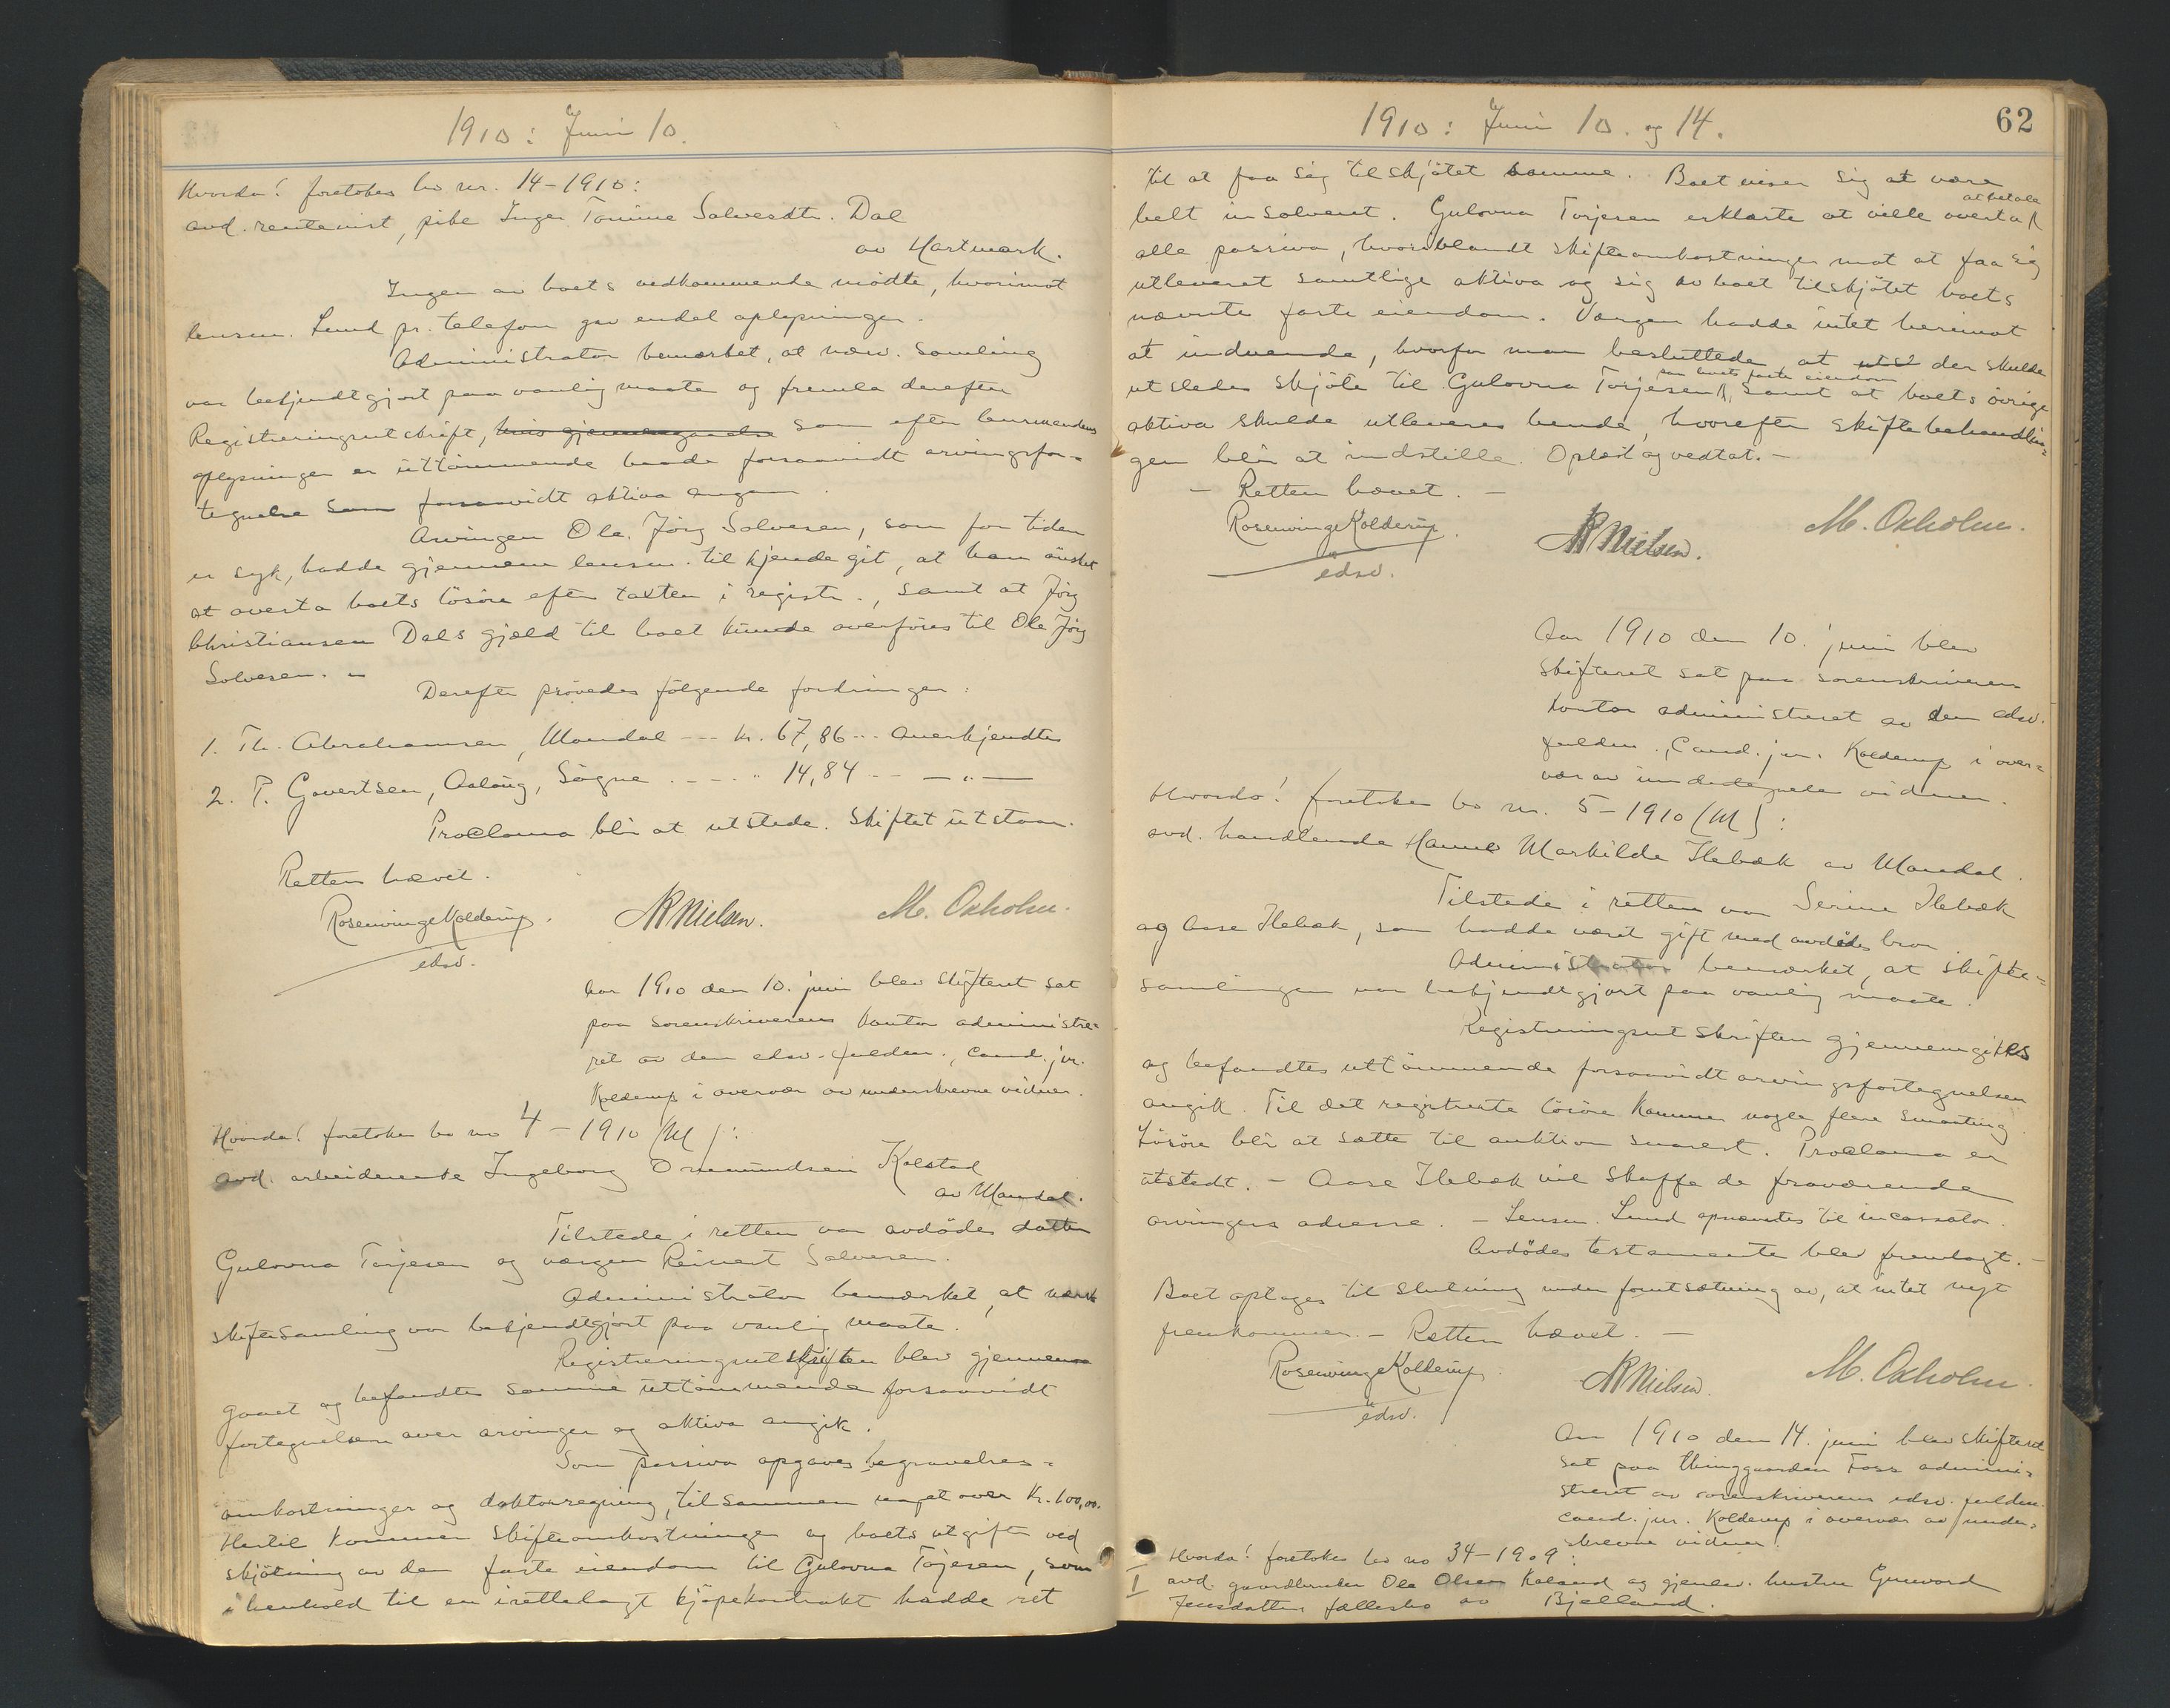 1910: Juni 10.
Hvorda! foretokes bo nr. 14-1910:
avd. rentenist, pike Inger Tomine Salvesdtr. Dal
av Hartmark.
Ingen av boets vedkommende mödte, hvorimot
lensm. Lund pr. telefon gav endel oplysninger.
Administrator bemærket, at nærv. samling
var bekjendtgjort paa vanlig maate og fremla derefter
Registreringsutskrift, hvis gjennemgaaelse som efter lensmandens
oplysninger er uttömmende baade forsaavidt arvingsfor=
tegnelse som forsaavidt aktiva angaar.
Arvingen Ole Jörg Salvesen, som for tiden
er syk, hadde gjennem lensm. tilkjendegit, at han önsket
at overta boets lösöre efter taxten i registr., samt at Jörg
Christiansen Dals gjæld til boet kunde overföres til Ole Jörg
Salvesen. -
Derefter prövedes fölgende fordringer:
1. Th. Abrahamsen, Mandal --- kr. 67,86 --- Anerkjendtes
2. T. Govertsen, Aalöug, Sögne ---- " 14,84 -- — " —
Proclama blir at utstede. Skiftet utstaar.
Retten hævet.
Rosenvinge Kolderup. NRNielsen. M. Oxholm.
edsv.
Aar 1910 den 10. juni blev skifteret sat
paa sorenskriverens kontor administre=
ret av den edsv. fuldm., cand. jur.
Kolderup i overvær av underskrevne vidner.
Hvorda! foretokes bo no 4-1910 (M):
avd. arbeiderenke Ingeborg Omundsen Kolstad
av Mandal.
Tilstede i retten var avdödes datter
Gulovna Torjesen og værgen Reinert Salvesen.
Administrator bemærket, at nærv.
skiftesamling var bekjendtgjort paa vanlig maate.
Registreringsutskriften blev gjennem=
gaaet og befandtes samme uttömmende forsaavidt
fortegnelsen over arvinger og aktiva angik.
Som passiva opgaves begravelses=
omkostninger og doktorregning, tilsammen noget over Kr. 100,00.
Hertil kommer skifteomkostninger og boets utgifter ved
skjötning av den faste eiendom til Gulovna Tojesen, som
i henhold til en irettelagt kjöpekontrakt hadde ret
1910: Juni 10. og 14.
62
til at faa sig tilskjötet samme. Boet viser sig at være
helt insolvent. Gulovna Torjesen erklærte at ville overta at betale
alle passiva, hvoriblandt skifteomkostninger mot at faa sig
utleveret samtlige aktiva og sig av boet tilskjötet boets
nævnte faste eiendom. Værgen hadde intet herimot
at indvende, hvorfor man besluttede, at utst der skulde
utstedes skjöte til Gulovna Torjesen paa boets faste eiendom, samt at boets övrige
aktiva skulde utleveres hende, hvorefter skiftebehandlin=
gen blir at indstille. Oplæst og vedtat. -
- Retten hævet. -
Rosenvinge Kolderup. NRNielsen. M. Oxholm.
edsv.
Aar 1910 den 10. juni blev
skifteret sat paa sorenskriverens
kontor administreret av den edsv.
fuldm., cand. jur. Kolderup i over=
vær av undertegnede vidner.
Hvorda! foretokes bo nr. 5-1910 (M):
avd. handlende Hanne Markilde Ilebæk av Mandal.
Tilstede i retten var Serine Ilebæk
og Aase Ilebæk, som hadde været gift med avdödes bror.
Administrator bemærket, at skifte=
samlingen var bekjendtgjort paa vanlig maate.
Registreringsutskriften gjennemgikkes
og befandtes uttömmende forsaavidt arvingsfortegnelsen
angik. Til det registrerte lösöre kommer nogle flere smaating.
Lösöre blir at sætte til auktion snarest. Proclama er
utstedt. - Aase Ilebæk vil skaffe de fraværende
arvingers adresse. - Lensm. Lund opnævntes til incassator.
Avdödes testamente blev fremlagt. -
Boet optages til slutning under forutsætning av, at intet nyt
fremkommer. - Retten hævet. -
Rosenvinge Kolderup. NRNielsen. M. Oxholm.
edsv.
Aar 1910 den 14. juni blev skifteret
sat paa thinggaarden Foss admini=
streret av sorenskriverens edsv. fuldm.
cand. jur. Kolderup i overvær av under=
skrevne vidner.
Hvorda! foretokes bo no 34-1909:
avd. gaardbruker Ole Olsen Kaland og gjenlev. hustru Gunvord
Jensdatters fællesbo av Bjelland.